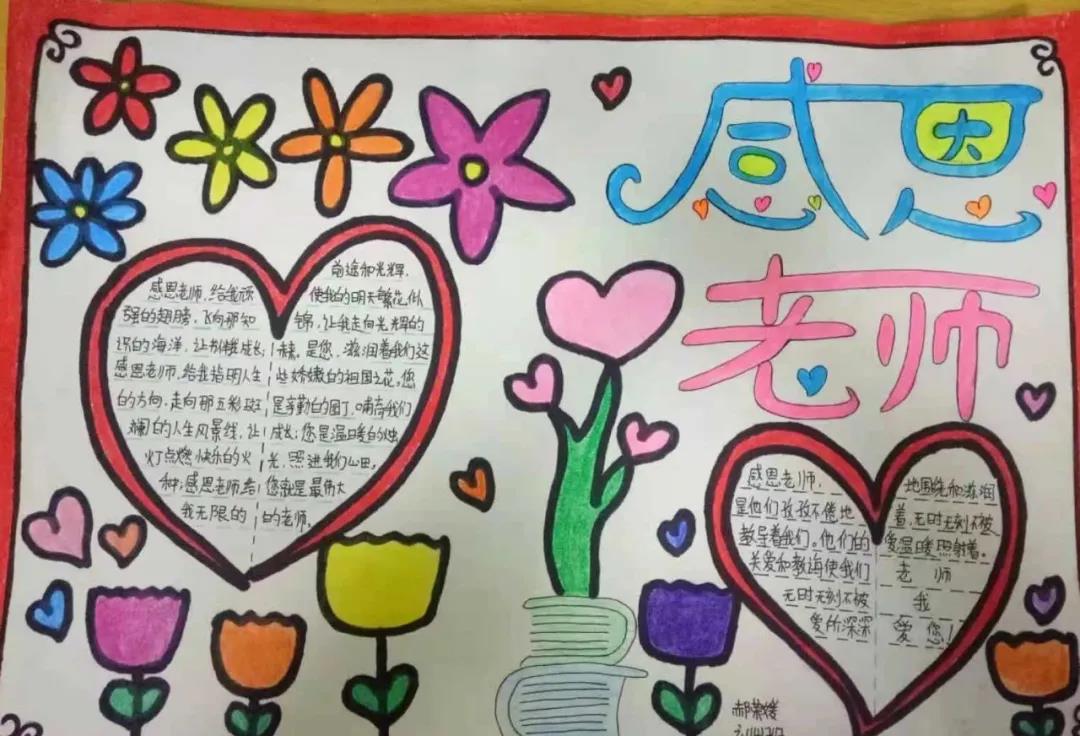 感恩
老师
感恩老师，给我顽
强的翅膀，飞向那知
识的海洋，让我成长；
感恩老师，给我指明人生
的方向，走向那五彩斑
斓的人生风景线，让
灯点燃快乐的火
种；感恩老师给
我无限的
前途和光辉，
使我的明天繁花似
锦，让我走向光辉的
是您，滋润着我们这
些娇嫩的祖国之花，您
是辛勤的园丁，哺育我们
成长；您是温暖的烛
光，照进我们心田，
您就是最伟大
的老师。
感恩老师，
是他们孜孜不倦地
教导着我们，他们的
关爱和教诲使我们
无时无刻不被
爱所深深
地围绕和滋润
着，无时无刻不被
爱温暖照射着。
老师
我
爱您！
郝荣媛